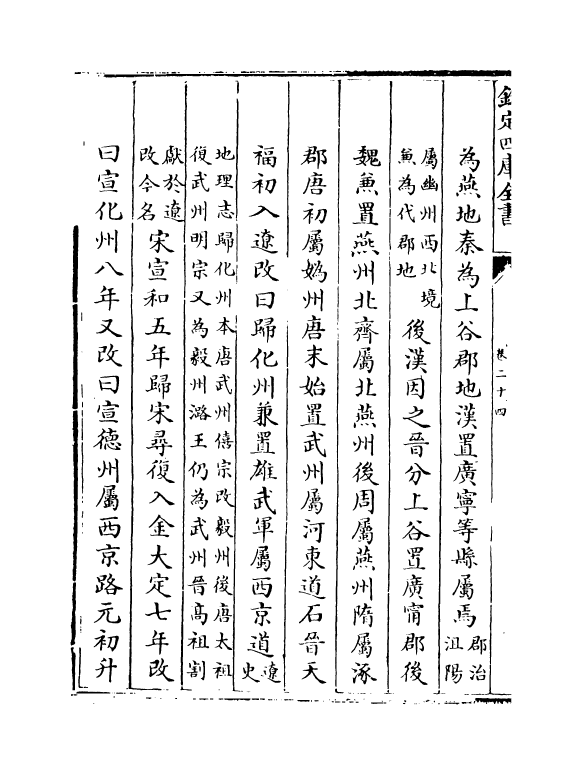 欽定四庫全書
卷二十四
為燕地秦為上谷郡地漢置廣寧等縣屬焉郡治沮陽
屬幽州西北境兼為代郡地後漢因之晉分上谷置廣甯郡後
魏兼置燕州北齊屬北燕州後周屬燕州隋屬涿
郡唐初屬媯州唐末始置武州屬河東道石晉天
福初入遼改曰歸化州兼置雄武軍屬西京道遼史
地理志歸化州本唐武州僖宗改毅州後唐太祖
復武州明宗又為毅州潞王仍為武州晉高祖割
獻於遼改今名宋宣和五年歸宋尋復入金大定七年改
曰宣化州八年又改曰宣德州屬西京路元初升